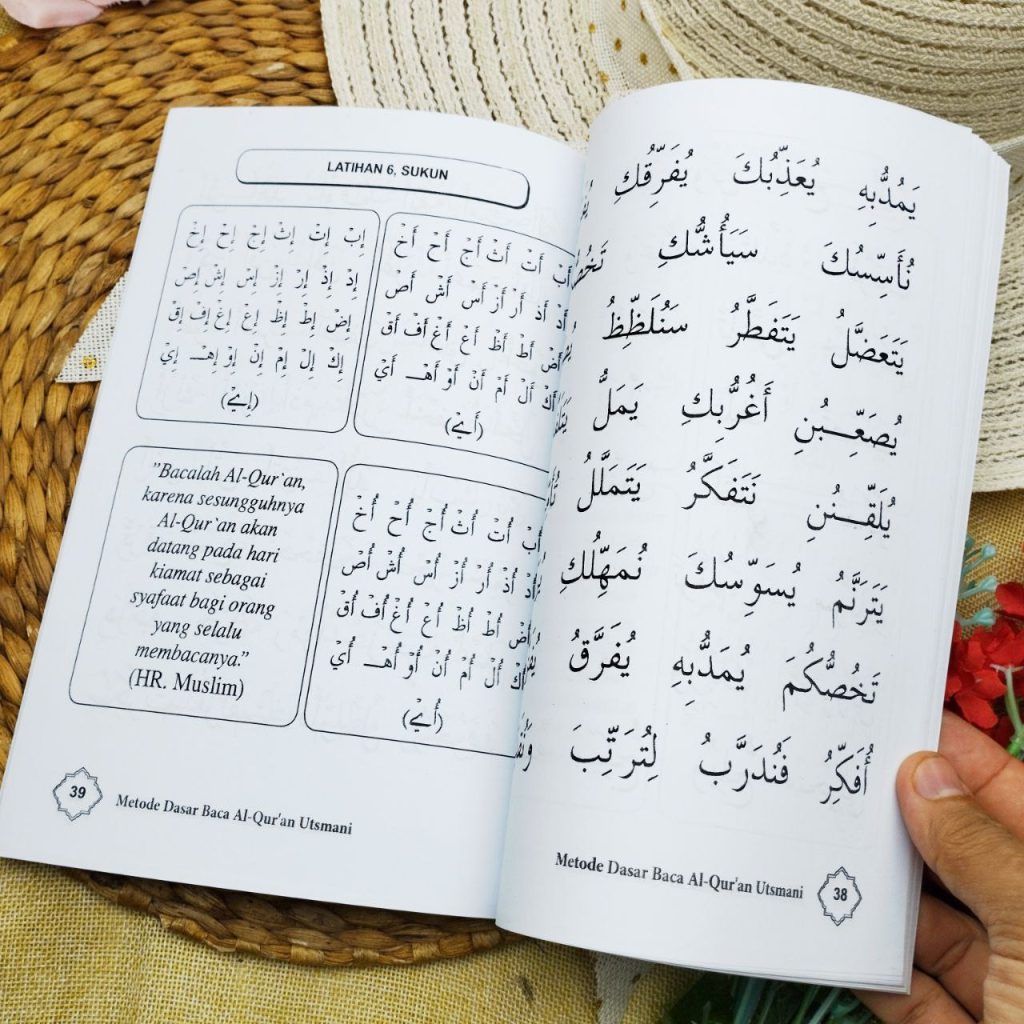 يَمُدُّبِهِ يُعَذِّبُكَ يُفَرِّقُكِ
نُأَسِّسُكَ سَيَأُشُّكِ
يَتَعَضَّلُ يَتَفَطَّرُ سَنُلَظِّظُ
يُصَعِّبُنِ أَغُرُّبِكِ يَمَلُّ
يُلَقِّنُنِ نَتَفَكَّرُ يَتَمَلَّلُ
يَتَرَنَّمُ يُسَوِّسُكَ نُمَهِّلُكِ
تَخُصُّكُمَ يُمَدُّبِهِ يُفَرَّقُ
أُفَكِّرُ فَنُدَرَّبُ لِتُرَتِّبَ
Metode Dasar Baca Al-Qur'an Utsmani 38
LATIHAN 6, SUKUN
أَبْ أَتْ أَثْ أَجْ أَحْ أَخْ
أَدْ أَذْ أَرْ أَزْ أَسْ أَشْ أَصْ
أَضْ أَطْ أَظْ أَعْ أَغْ أَفْ أَقْ
أَكْ أَلْ أَمْ أَنْ أَوْ أَهْـ أَيْ
(أَيْ)
إِبْ إِتْ إِثْ إِجْ إِحْ إِخْ
إِدْ إِذْ إِرْ إِزْ إِسْ إِشْ إِصْ
إِضْ إِطْ إِظْ إِعْ إِغْ إِفْ إِقْ
إِكْ إِلْ إِمْ إِنْ إِوْ إِهْـ إِيْ
(إِيْ)
أُبْ أُتْ أُثْ أُجْ أُحْ أُخْ
أُدْ أُذْ أُرْ أُزْ أُسْ أُشْ أُصْ
أُضْ أُطْ أُظْ أُعْ أُغْ أُفْ أُقْ
أُكْ أُلْ أُمْ أُنْ أُوْ أُهْـ أُيْ
(أُيْ)
"Bacalah Al-Qur`an,
karena sesungguhnya
Al-Qur`an akan
datang pada hari
kiamat sebagai
syafaat bagi orang
yang selalu
membacanya."
(HR. Muslim)
39 Metode Dasar Baca Al-Qur'an Utsmani